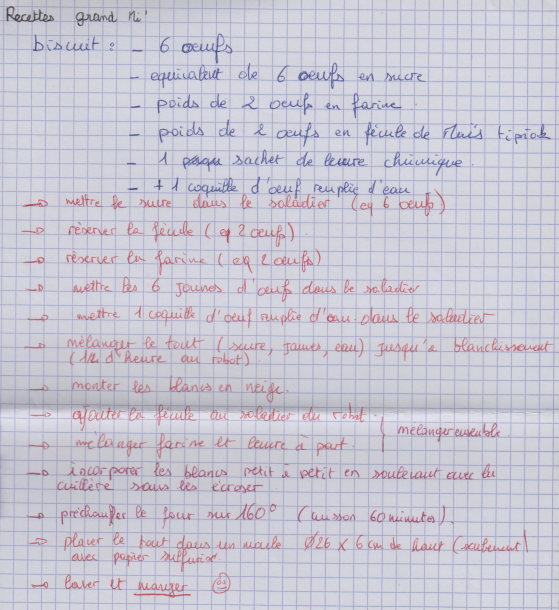 Recettes grand Ni'
biscuit : - 6 oeufs
- equivalent de 6 oeufs en sucre
- poids de 2 oeuf en farine.
- poids de 2 oeufs en fécule de Maïs
- 1 sachet de levure chimique.
- + 1 coquille d'oeuf remplie d'eau
→ mettre le sucre dans le saladier (eq 6 oeufs)
→ réserver la fécule (eq 2 oeufs).
→ réserver la farine (eq 2 oeufs)
→ mettre les 6 jaunes d'oeufs dans le saladier
→ mettre 1 coquille d'oeuf remplie d'eau dans le saladier
→ mélanger le tout (sucre, jaunes, eau) jusqu'a blanchissement
(1/2 d'heure au robot).
→ monter les blancs en neige.
→ ajouter la fécule au saladier du robot.
→ mélanger farine et levure à part. } mélanger ensemble
→ incorporer les blancs petit à petit en soulevant avec la
cuillère sans les écraser
→ préchauffer le four sur 160° (cuisson 60 minutes).
→ placer le tout dans un moule Ø26 x 6 cm de haut (seulement)
avec papier sulfurisé.
→ laver et manger